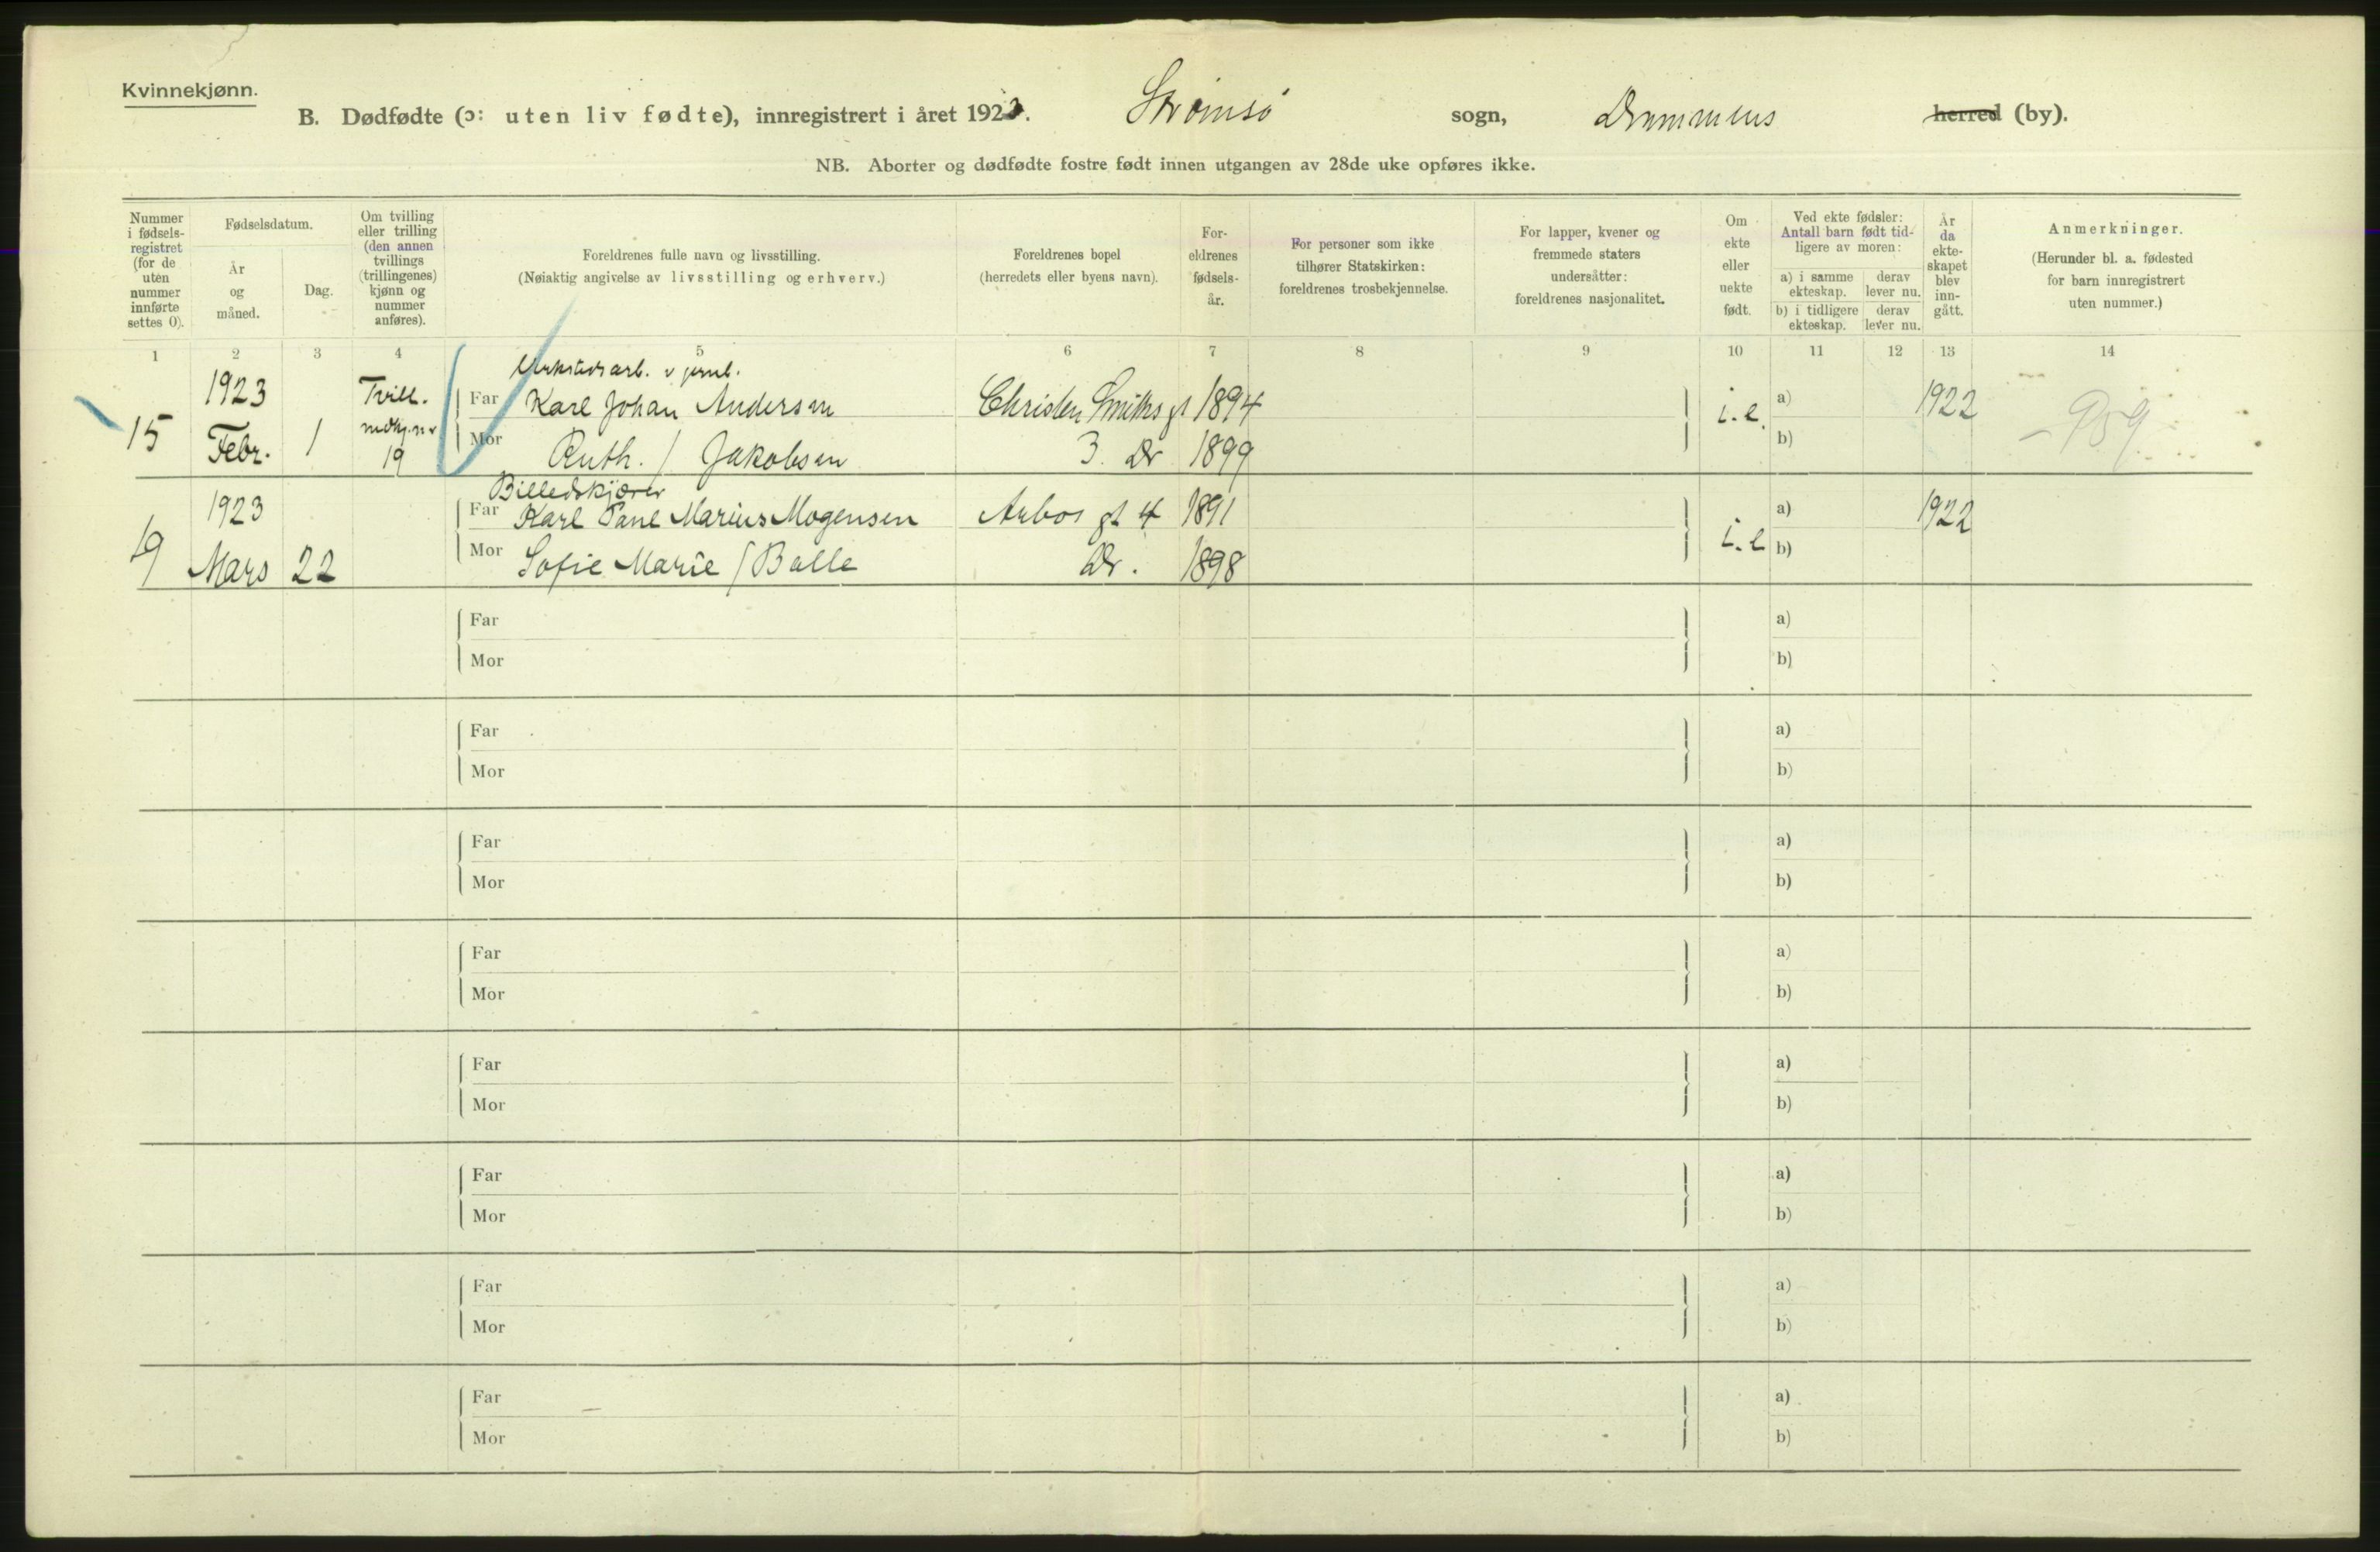 Kvinnekjønn.
B. Dødfødte (ɔ: uten liv fødte), innregistrert i året 1923. Strømsø sogn, Drammens herred (by).
NB. Aborter og dødfødte fostre født innen utgangen av 28de uke opføres ikke.
Nummer i fødsels-registret (for de uten nummer innførte settes 0).
Fødselsdatum.
År og måned.
Dag.
Om tvilling eller trilling (den annen tvillings (trillingenes) kjønn og nummer anføres).
Foreldrenes fulle navn og livsstilling.
(Nøiaktig angivelse av livsstilling og erhverv.)
Foreldrenes bopel
(herredets eller byens navn).
For-eldrenes fødsels-år.
For personer som ikke tilhører Statskirken: foreldrenes trosbekjennelse.
For lapper, kvener og fremmede staters undersåtter: foreldrenes nasjonalitet.
Om ekte eller uekte født.
Ved ekte fødsler: Antall barn født tid-ligere av moren:
a) i samme ekteskap. derav lever nu.
b) i tidligere ekteskap. derav lever nu.
År da ekte-skapet blev inn-gått.
Anmerkninger.
(Herunder bl. a. fødested for barn innregistrert uten nummer.)
1 2 3 4 5 6 7 8 9 10 11 12 13 14
Verkstedsarb. v jernb.
1923 Tvill. Far Karl Johan Andersen Christen Smiths gt 1894 a) 1922
15 Febr. 1 Mor Ruth / Jakobsen 3. Dr 1899 i.e. b) 959
19
Billedskjærer
1923 Far Karl Marius Mogensen Arbos gt 4 1891 a) 1922
19 Mars 22 Mor Sofie Marie / Balle Dr. 1898 i.e b)
Far a)
Mor b)
Far a)
Mor b)
Far a)
Mor b)
Far a)
Mor b)
Far a)
Mor b)
Far a)
Mor b)
Far a)
Mor b)
Far a)
Mor b)